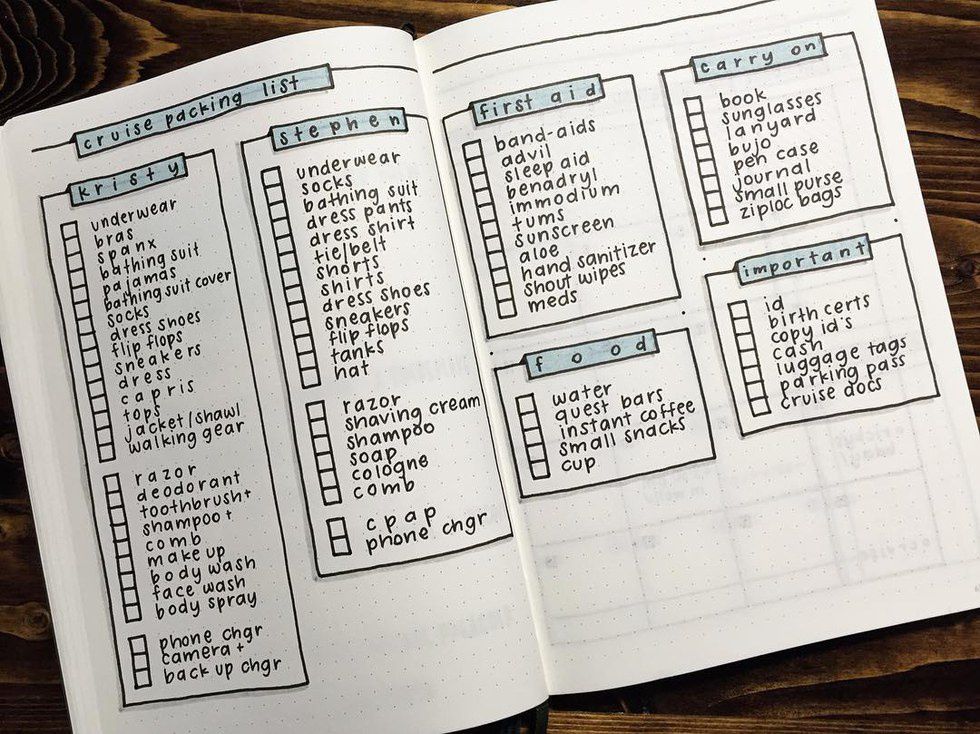 cruise packing list
kristy
underwear
bras
spanx
bathing suit
pajamas
bathing suit cover
socks
dress shoes
flip flops
sneakers
dress
capris
tops
jacket/shawl
walking gear
razor
deodorant
toothbrush+
shampoo+
comb
make up
body wash
face wash
body spray
phone chgr
camera+
back up chgr
stephen
underwear
socks
bathing suit
dress pants
dress shirt
tie/belt
shorts
shirts
dress shoes
sneakers
flip flops
tanks
hat
razor
shaving cream
shampoo
soap
cologne
comb
cpap
phone chgr
first aid
band-aids
advil
sleep aid
benadryl
immodium
tums
sunscreen
aloe
hand sanitizer
shout wipes
meds
food
water
quest bars
instant coffee
small snacks
cup
carry on
book
sunglasses
lanyard
bujo
pen case
journal
small purse
ziploc bags
important
id
birth certs
copy id's
cash
luggage tags
parking pass
cruise docs